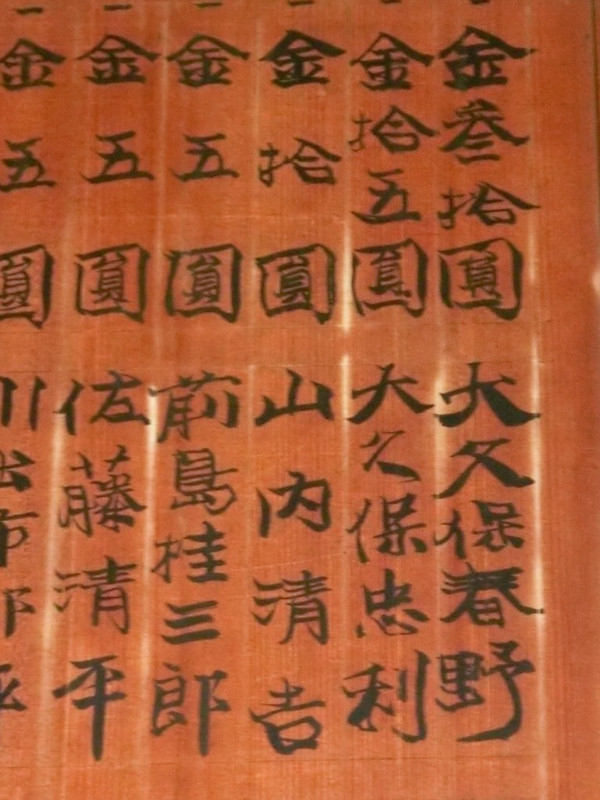 一金叁拾圓 大久保春野
一金拾五圓 大久保忠利
一金拾圓 山内清吉
一金五圓 前島桂三郎
一金五圓 佐藤清平
一金五圓 川